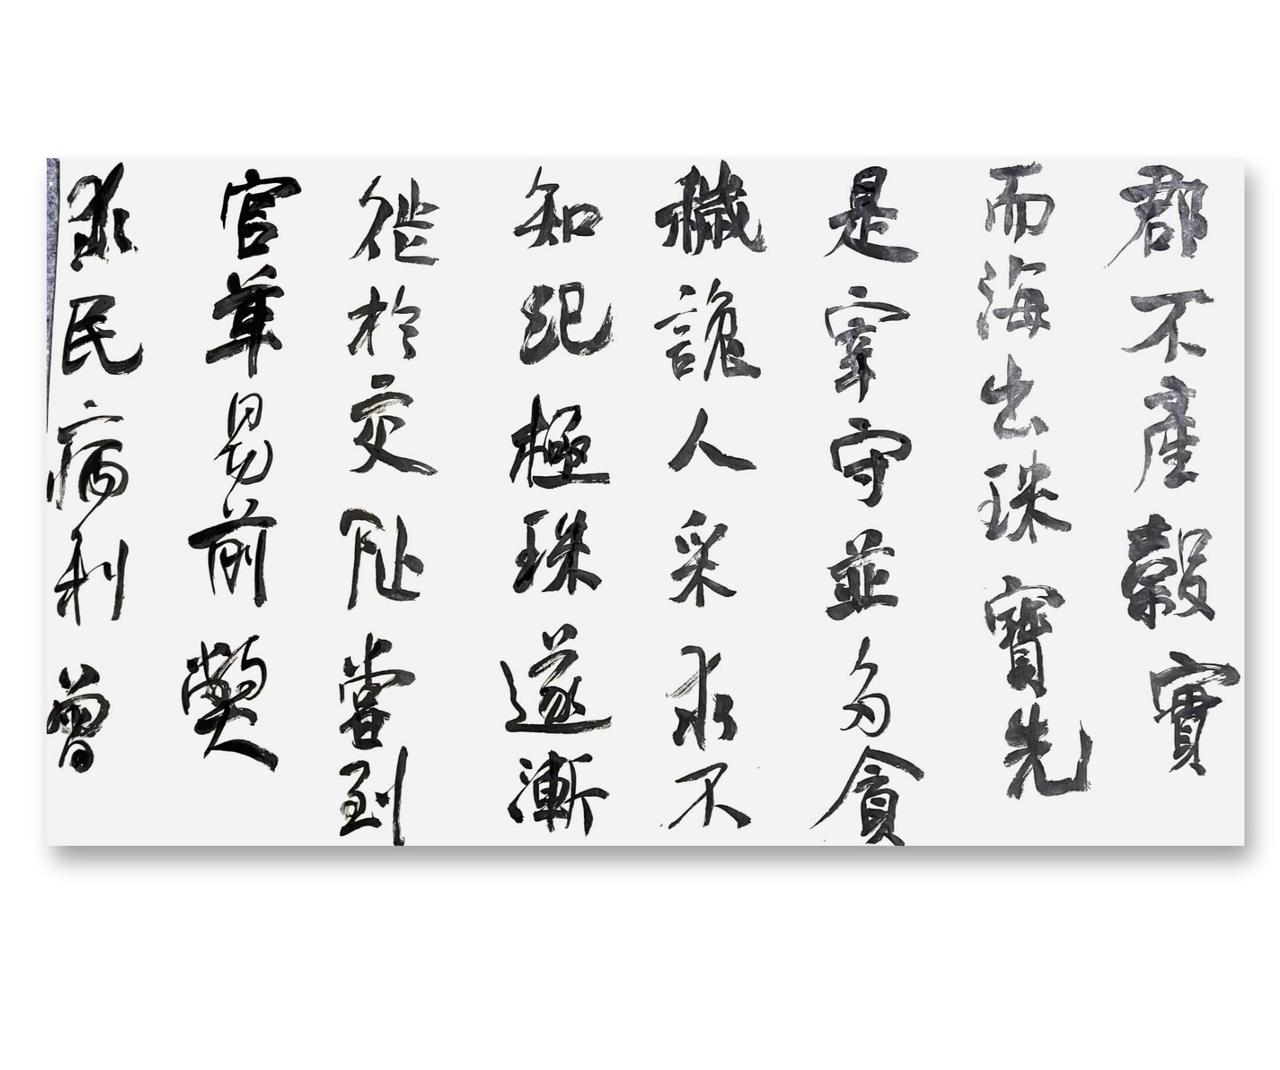 郡不產穀實
而海出珠寶先
是宰守並多貪
穢詭人采求不
知紀極珠遂漸
徙於交阯嘗到
官革易前獘
求民病利曾